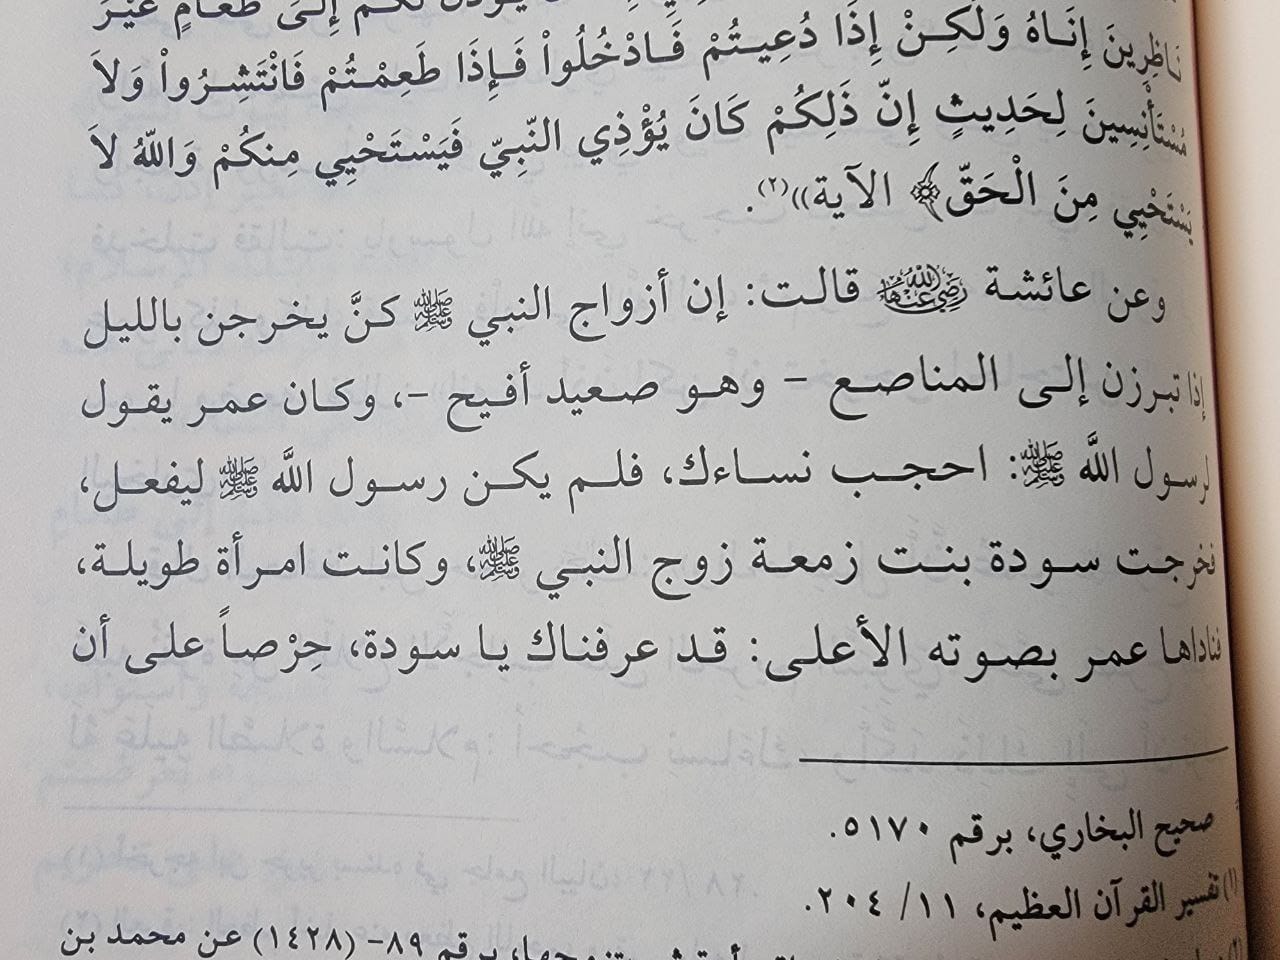 لكم إلى طعامٍ غَيْرَ
نَاظِرِينَ إِنَاهُ وَلَكِنْ إِذَا دُعِيتُمْ فَادْخُلُواْ فَإِذَا طَعِمْتُمْ فَانْتَشِرُواْ وَلاَ
مُسْتَأْنِسِينَ لِحَدِيثٍ إِنّ ذَلِكُمْ كَانَ يُؤْذِي النّبِيّ فَيَسْتَحْيِي مِنكُمْ وَاللّهُ لاَ
يَسْتَحْيِي مِنَ الْحَقّ﴾ الآية))(٢).
وعن عائشة رَضِيَ اللهُ عَنْهَا قالت: إن أزواج النبي ﷺ كنَّ يخرجن بالليل
إذا تبرزن إلى المناصع – وهو صعيد أفيح –، وكان عمر يقول
لرسول اللَّه ﷺ: احجب نساءك، فلم يكن رسول اللَّه ﷺ ليفعل،
فخرجت سودة بنت زمعة زوج النبي ﷺ، وكانت امرأة طويلة،
فناداها عمر بصوته الأعلى: قد عرفناك يا سودة، حِرْصاً على أن
صحيح البخاري، برقم ٥١٧٠.
(١) تفسير القرآن العظيم، ١١/ ٢٠٤.
برقم ٨٩- (١٤٢٨) عن محمد بن